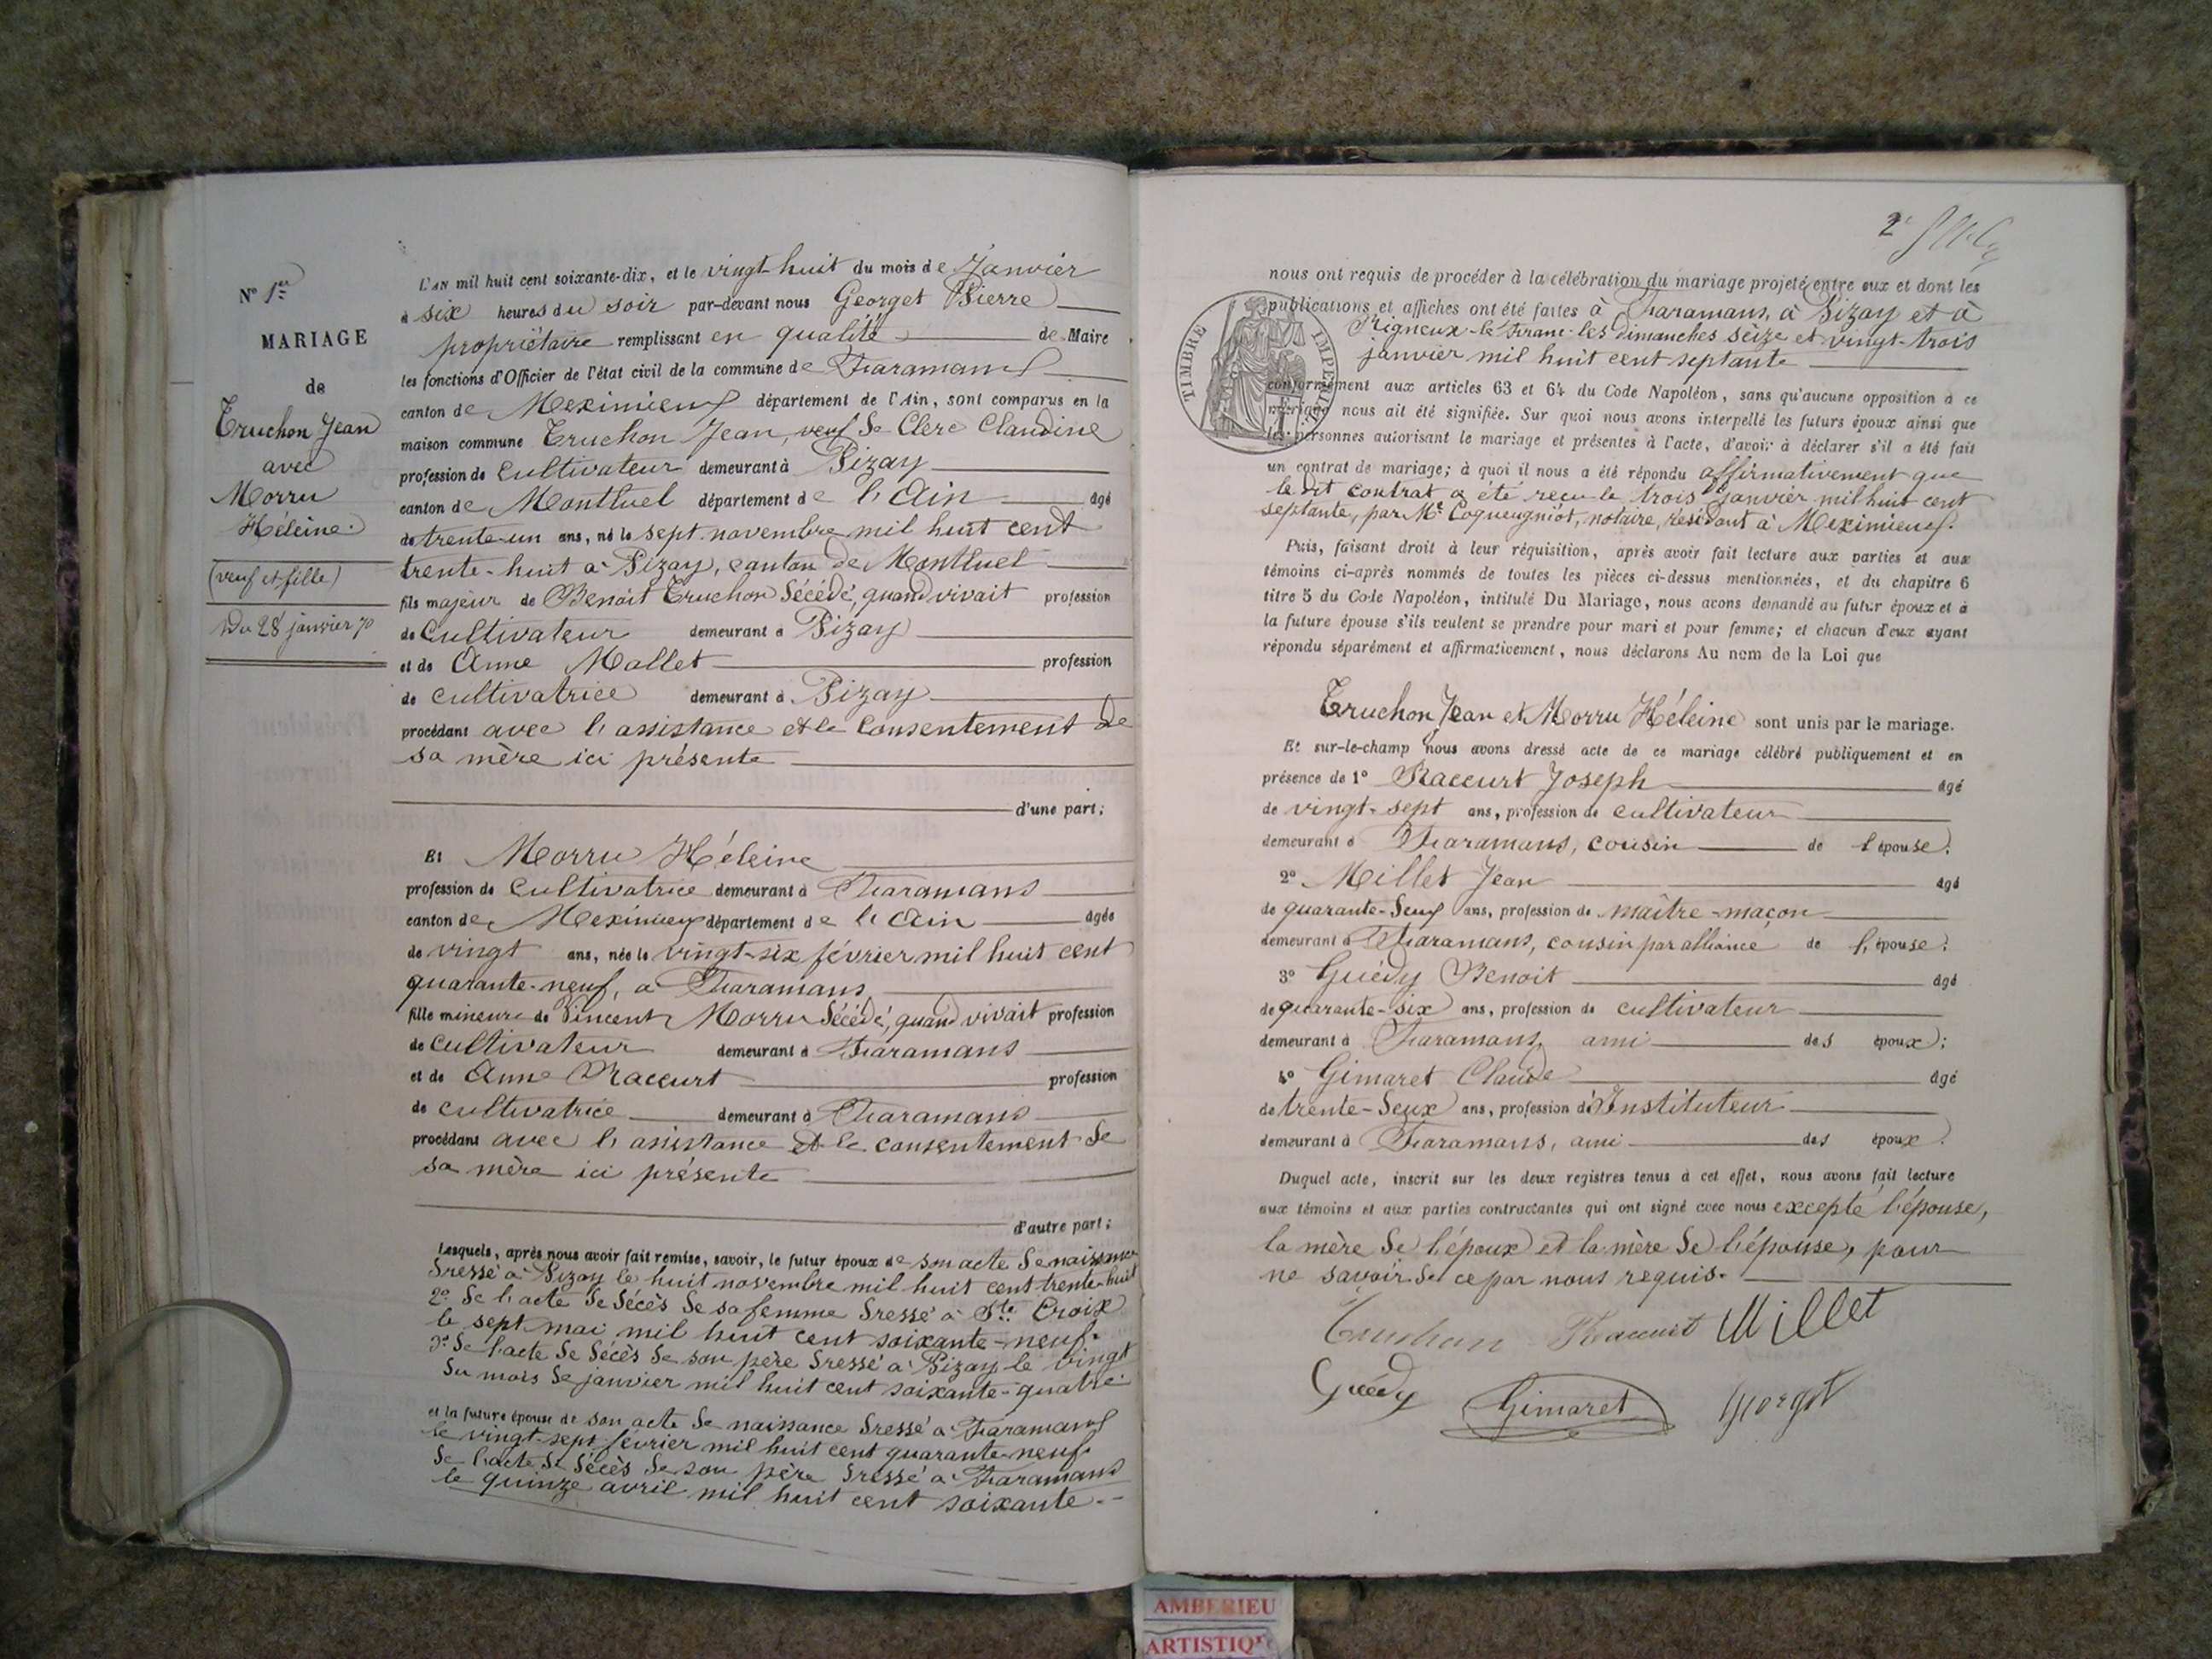 N° 1er
MARIAGE
de
Truchon Jean
avec
Morru
Héleine
(veuf et fille)
Du 28 janvier 70
L'AN mil huit cent soixante-dix, et le vingt-huit du mois de Janvier
à six heures du soir par-devant nous Georget Pierre
propriétaire remplissant en qualité de Maire
les fonctions d'Officier de l'état civil de la commune de Faramans
canton de Meximieux département de l'Ain, sont comparus en la
maison commune Truchon Jean, veuf de Clerc Claudine
profession de cultivateur demeurant à Pizay
canton de Montluel département de l'Ain âgé
de trente-un ans, né le sept novembre mil huit cent
trente-huit à Pizay, canton de Montluel
fils majeur de Benoit Truchon décédé, quand vivait profession
de Cultivateur demeurant à Pizay
et de Anne Mallet profession
de cultivatrice demeurant à Pizay
procédant avec l'assistance et le consentement de
sa mère ici présente
d'une part;
Et Morru Héleine
profession de cultivatrice demeurant à Faramans
canton de Meximieux département de l'Ain âgée
de vingt ans, née le vingt-six février mil huit cent
quarante-neuf, à Faramans
fille mineure de Vincent Morru décédé, quand vivait profession
de cultivateur demeurant à Faramans
et de Anne Raccurt profession
de cultivatrice demeurant à Faramans
procédant avec l'assistance et le consentement de
sa mère ici présente
d'autre part;
Lesquels, après nous avoir fait remise, savoir, le futur époux de son acte de naissance
dressé à Pizay le huit novembre mil huit cent trente-huit
2° de l'acte de décès de sa femme dressé à Ste Croix
le sept mai mil huit cent soixante-neuf.
3° de l'acte de décès de son père dressé à Pizay le vingt
du mois de janvier mil huit cent soixante-quatre
et la future épouse de son acte de naissance dressé à Faramans
le vingt-sept février mil huit cent quarante-neuf.
de l'acte de décès de son père dressé à Faramans
le quinze avril mil huit cent soixante.
2e
nous ont requis de procéder à la célébration du mariage projeté entre eux et dont les
publications et affiches ont été faites à Faramans, à Pizay et à
Rigneux-le-Franc les dimanches seize et vingt-trois
janvier mil huit cent septante
TIMBRE IMPERIAL
conformément aux articles 63 et 64 du Code Napoléon, sans qu'aucune opposition à ce
mariage nous ait été signifiée. Sur quoi nous avons interpellé les futurs époux ainsi que
les personnes autorisant le mariage et présentes à l'acte, d'avoir à déclarer s'il a été fait
un contrat de mariage; à quoi il nous a été répondu affirmativement que
le dit contrat a été reçu le trois janvier mil huit cent
septante, par Me Coqueugniot, notaire, résidant à Meximieux.
Puis, faisant droit à leur réquisition, après avoir fait lecture aux parties et aux
témoins ci-après nommés de toutes les pièces ci-dessus mentionnées, et du chapitre 6
titre 5 du Code Napoléon, intitulé Du Mariage, nous avons demandé au futur époux et à
la future épouse s'ils veulent se prendre pour mari et pour femme; et chacun d'eux ayant
répondu séparément et affirmativement, nous déclarons Au nom de la Loi que
Truchon Jean et Morru Héleine sont unis par le mariage.
Et sur-le-champ nous avons dressé acte de ce mariage célébré publiquement et en
présence de 1° Raccurt Joseph âgé
de vingt-sept ans, profession de cultivateur
demeurant à Faramans, cousin de l'épouse.
2° Millet Jean âgé
de quarante-deux ans, profession de maître-maçon
demeurant à Faramans, cousin par alliance de l'épouse.
3° Guédy Benoit âgé
de quarante-six ans, profession de cultivateur
demeurant à Faramans, ami des époux;
4° Gimaret Claude âgé
de trente-deux ans, profession d'Instituteur
demeurant à Faramans, ami des époux.
Duquel acte, inscrit sur les deux registres tenus à cet effet, nous avons fait lecture
aux témoins et aux parties contractantes qui ont signé avec nous excepté l'épouse,
la mère de l'époux et la mère de l'épouse, pour
ne savoir de ce par nous requis.
Truchon Raccurt Millet
Guédy Gimaret Georget
AMBERIEU
ARTISTIQUE